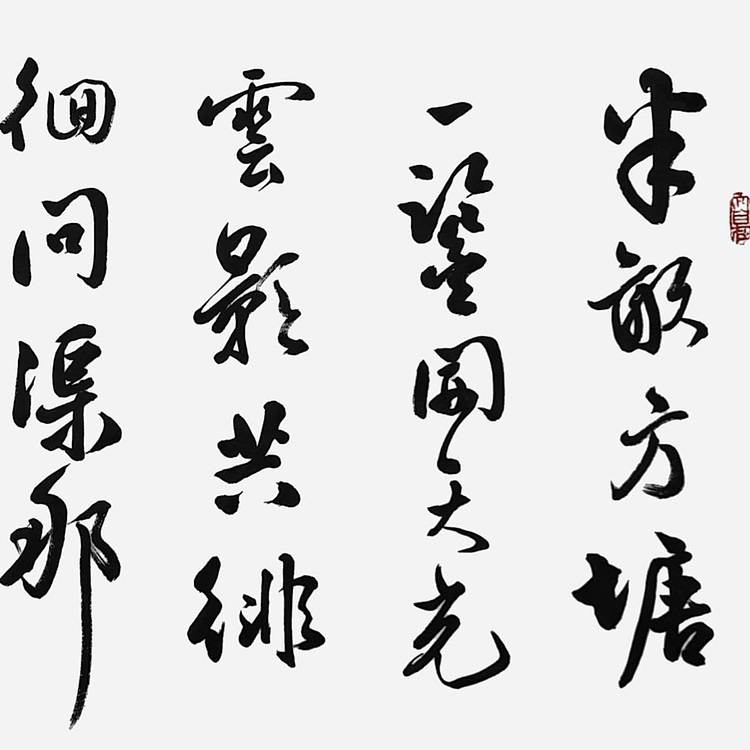 半畝方塘
一鑒開天光
雲影共徘
徊問渠那